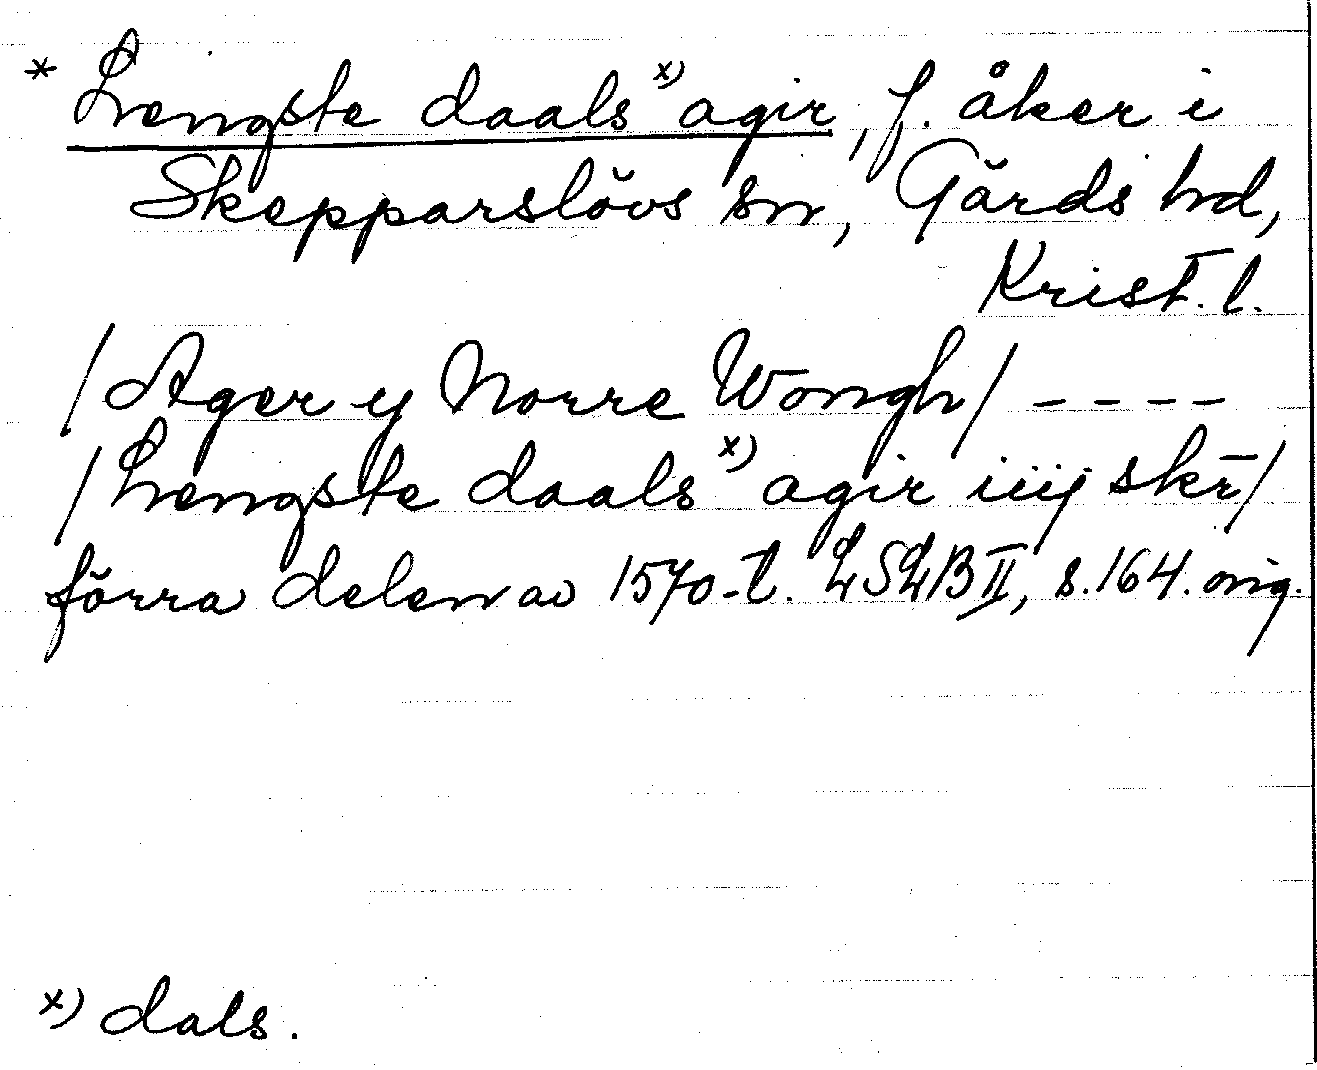 * Lengste daals x) agir, f. åker i
Skepparslövs sn, Gärds hd,
Krist. l.
/Ager y Norre Wongh/ ----
/Lengste daals x) agir iiij skr̄/
förra delen av 1570-t. LSLB II, s. 164. orig.
x) dals.